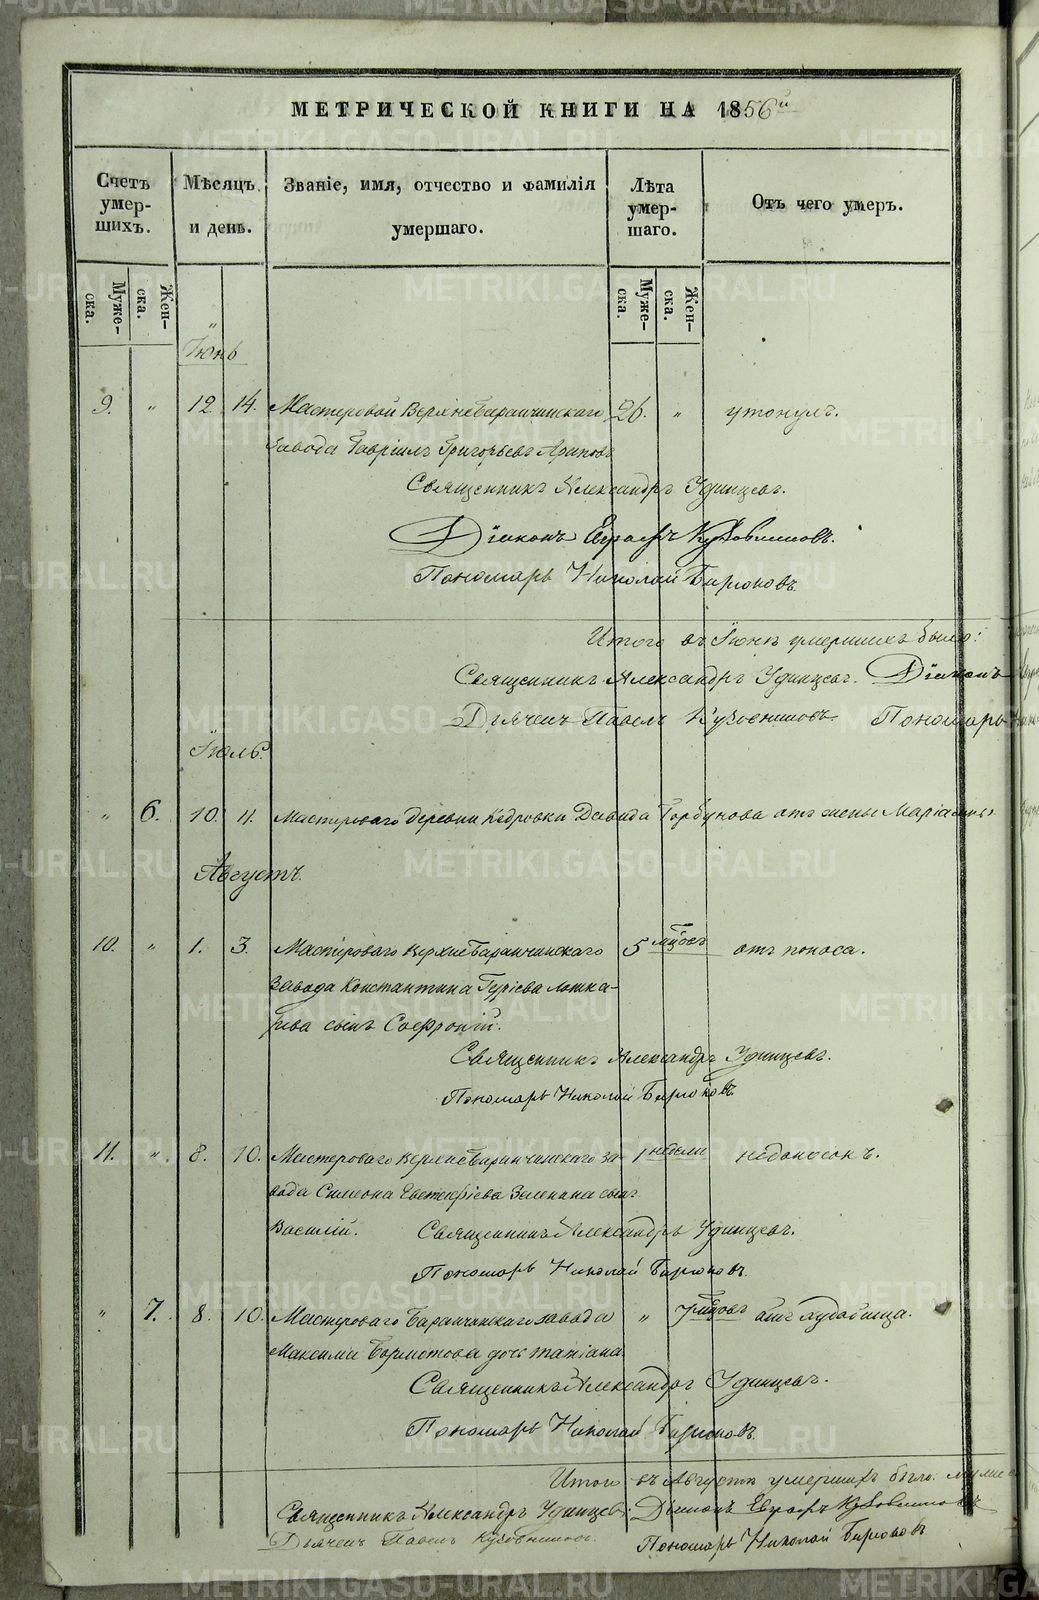 МЕТРИЧЕСКОЙ КНИГИ НА 1856й
Счетъ умер-шихъ.
Мѣсяцъ и день.
Званіе, имя, отчество и фамилія умершаго.
Лѣта умер-шаго.
Отъ чего умеръ.
Муже-ска.
Жен-ска.
Муже-ска.
Жен-ска.
Іюнь
9. " 12. 14. Мастеровой Верхнебаранчинскаго 26. " утонулъ.
завода Гавріилъ Григорьевъ Араповъ
Священникъ Александръ Удинцевъ.
Діаконъ Евграфъ Кузовниковъ.
Пономарь Николай Бирюковъ.
Итого въ Іюнѣ умершихъ было:
Священникъ Александръ Удинцевъ. Діаконъ
Дьячекъ Павелъ Кузовниковъ Пономарь
Іюль.
" 6. 10. 11. Мастероваго деревни Кедровки Давида Горбунова отъ жены Маріамны
Августъ.
10. " 1. 3. Мастероваго Верхнебаранчинскаго 5 мцовъ отъ поноса.
завода Константина Гуріева Лошка-
рева сынъ Софроній.
Священникъ Александръ Удинцевъ.
Пономарь Николай Бирюковъ
11. " 8. 10. Мастероваго Верхнебаранчинскаго за- 1 недели недоносокъ.
вода Симеона Зеленина сынъ
Василій. Священникъ Александръ Удинцевъ.
Пономарь Николай Бирюковъ.
" 7. 8. 10. Мастероваго Баранчинскаго завода " 7 мцовъ отъ худобища.
Максима Бормотова дочь Татіана.
Священникъ Александръ Удинцевъ.
Пономарь Николай Бирюковъ.
Итого въ Августѣ умершихъ было:
Священникъ Александръ Удинцевъ. Діаконъ Евграфъ Кузовниковъ
Дьячекъ Павелъ Кузовниковъ. Пономарь Николай Бирюковъ
METRIKI.GASO-URAL.RU